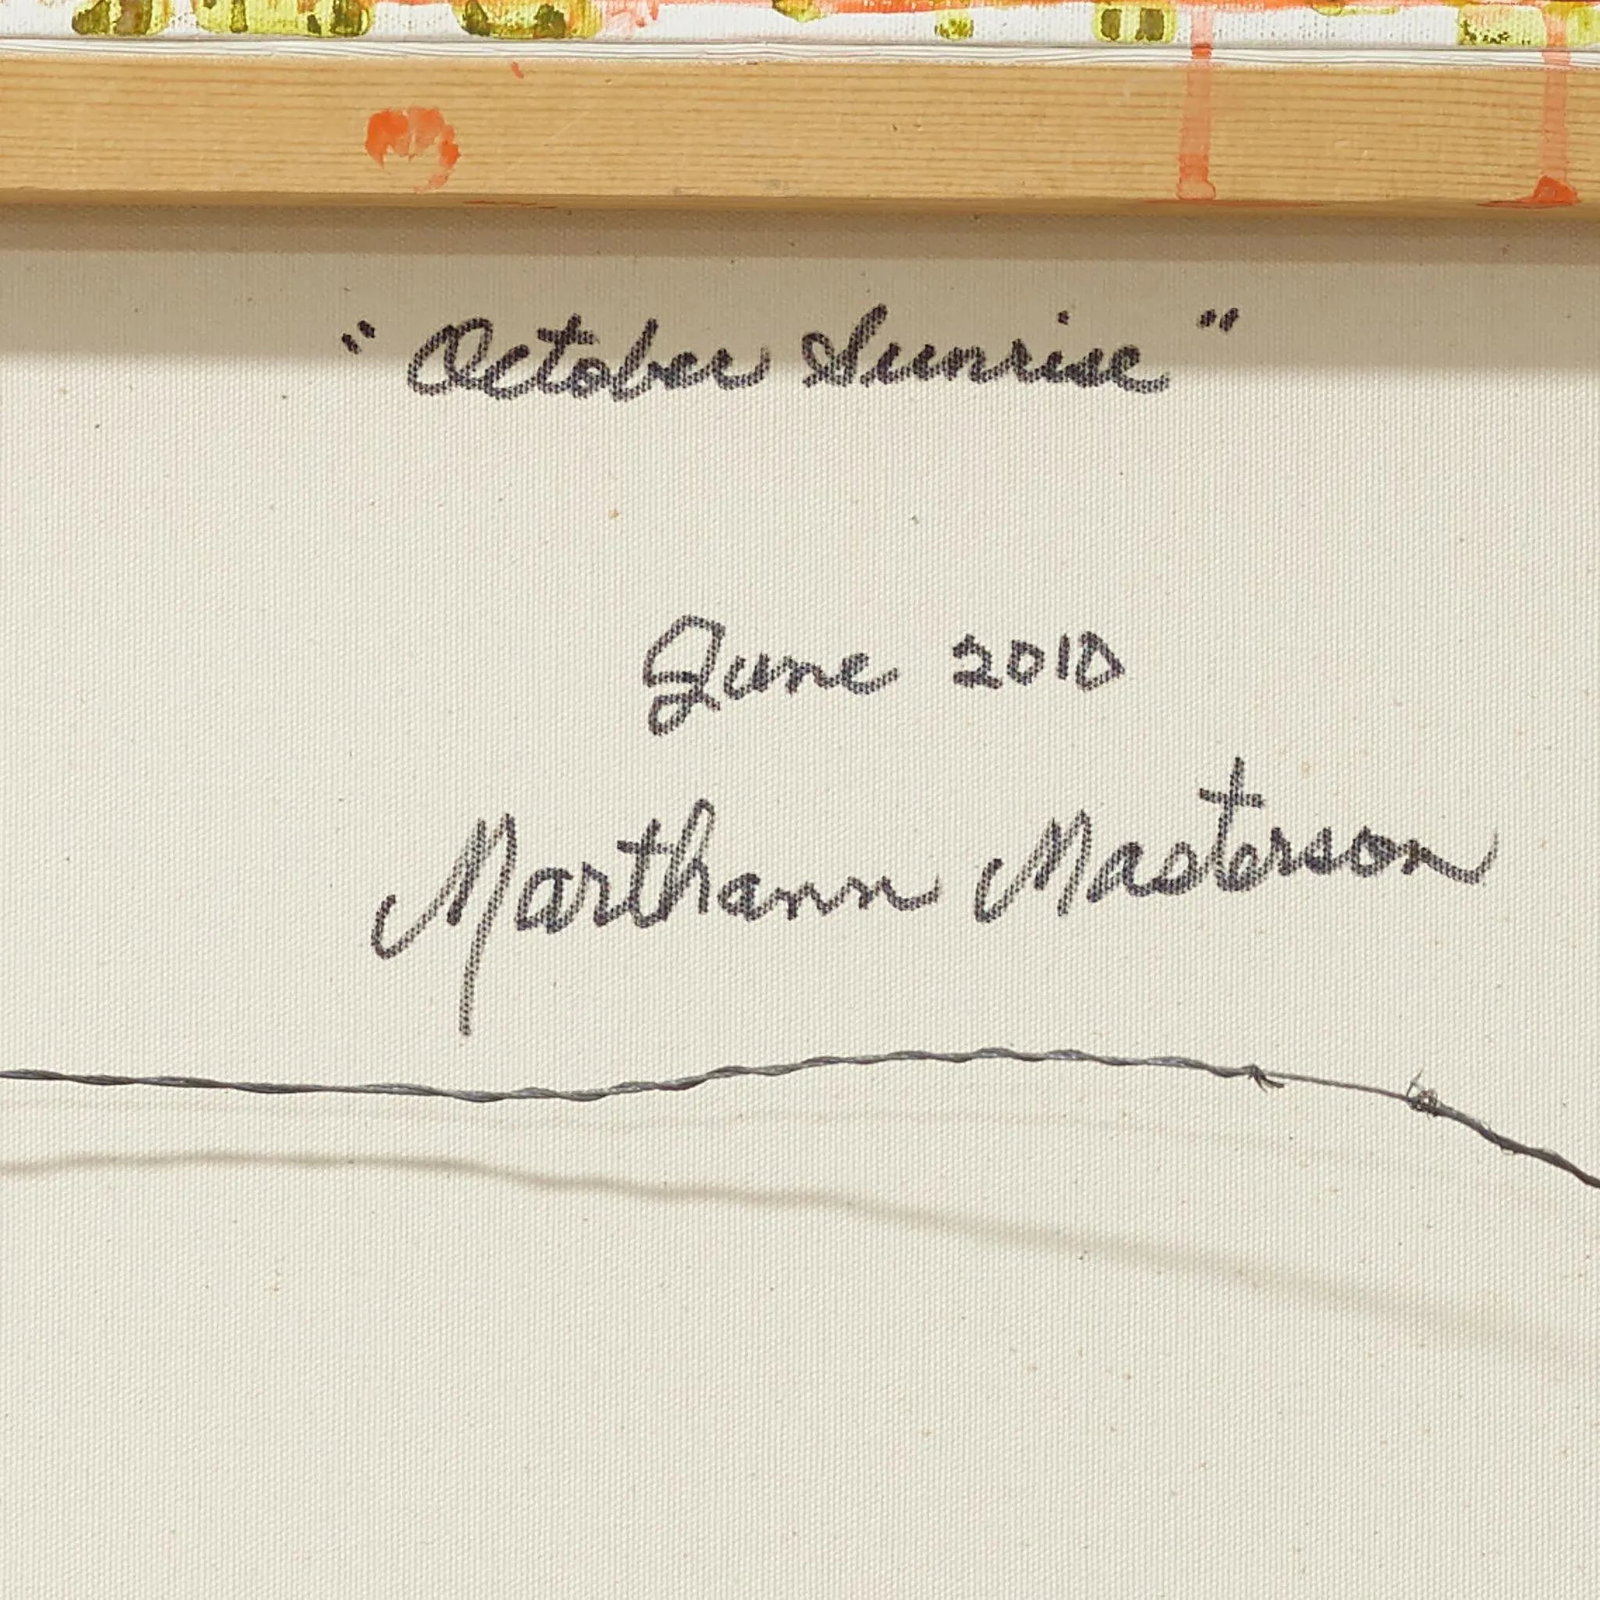 "October Sunrise"
June 2010
Marthann Masterson